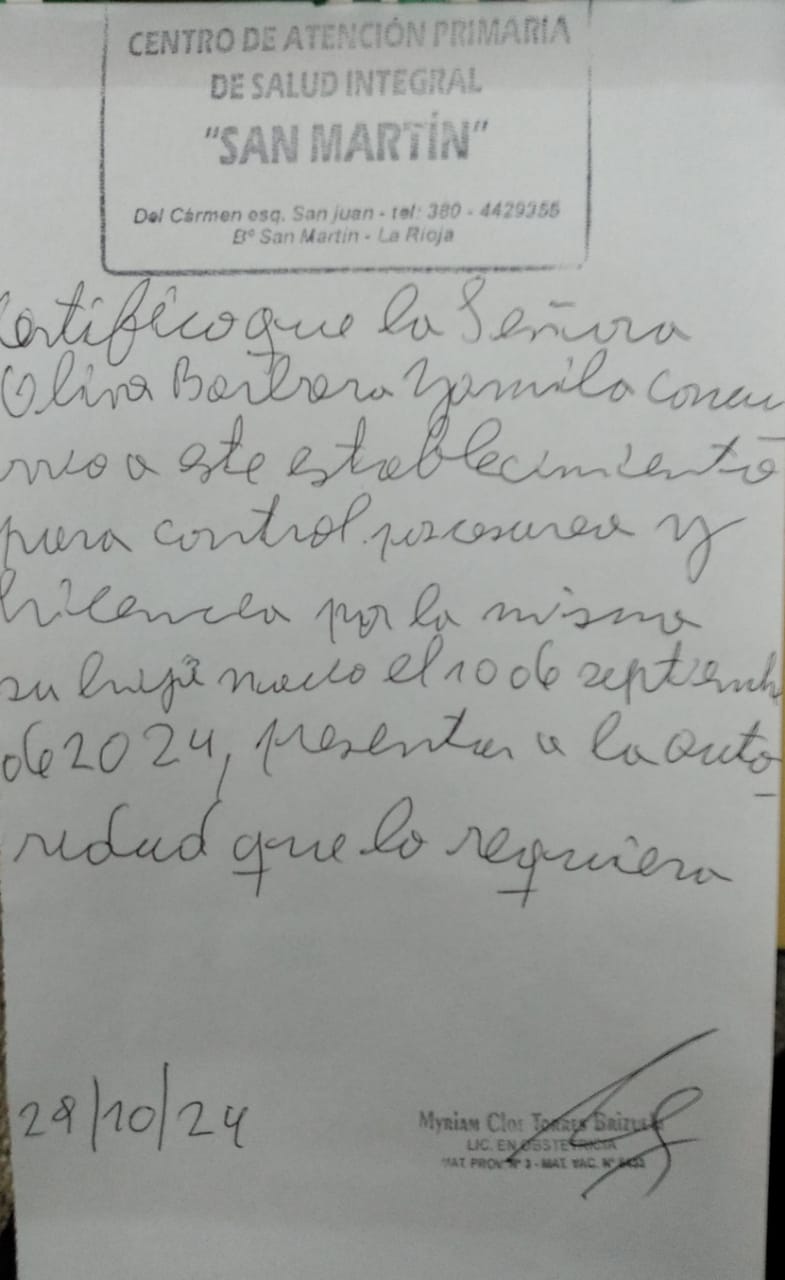 CENTRO DE ATENCIÓN PRIMARIA
DE SALUD INTEGRAL
"SAN MARTÍN"
Del Cármen esq. San juan - tel: 380 - 4429355
Bº San Martín - La Rioja
Certifico que la Señora
Oliva Barbara Yamila Concu
rrio a este establecimiento
para control y
por la misma
su hija nacio el 10 de septiemb
de 2024, presentar a la auto
ridad que lo requiera
29/10/24
Myriam Torres
LIC. EN OBSTETRICIA
MAT. PROV. Nº 3 - MAT. Nº